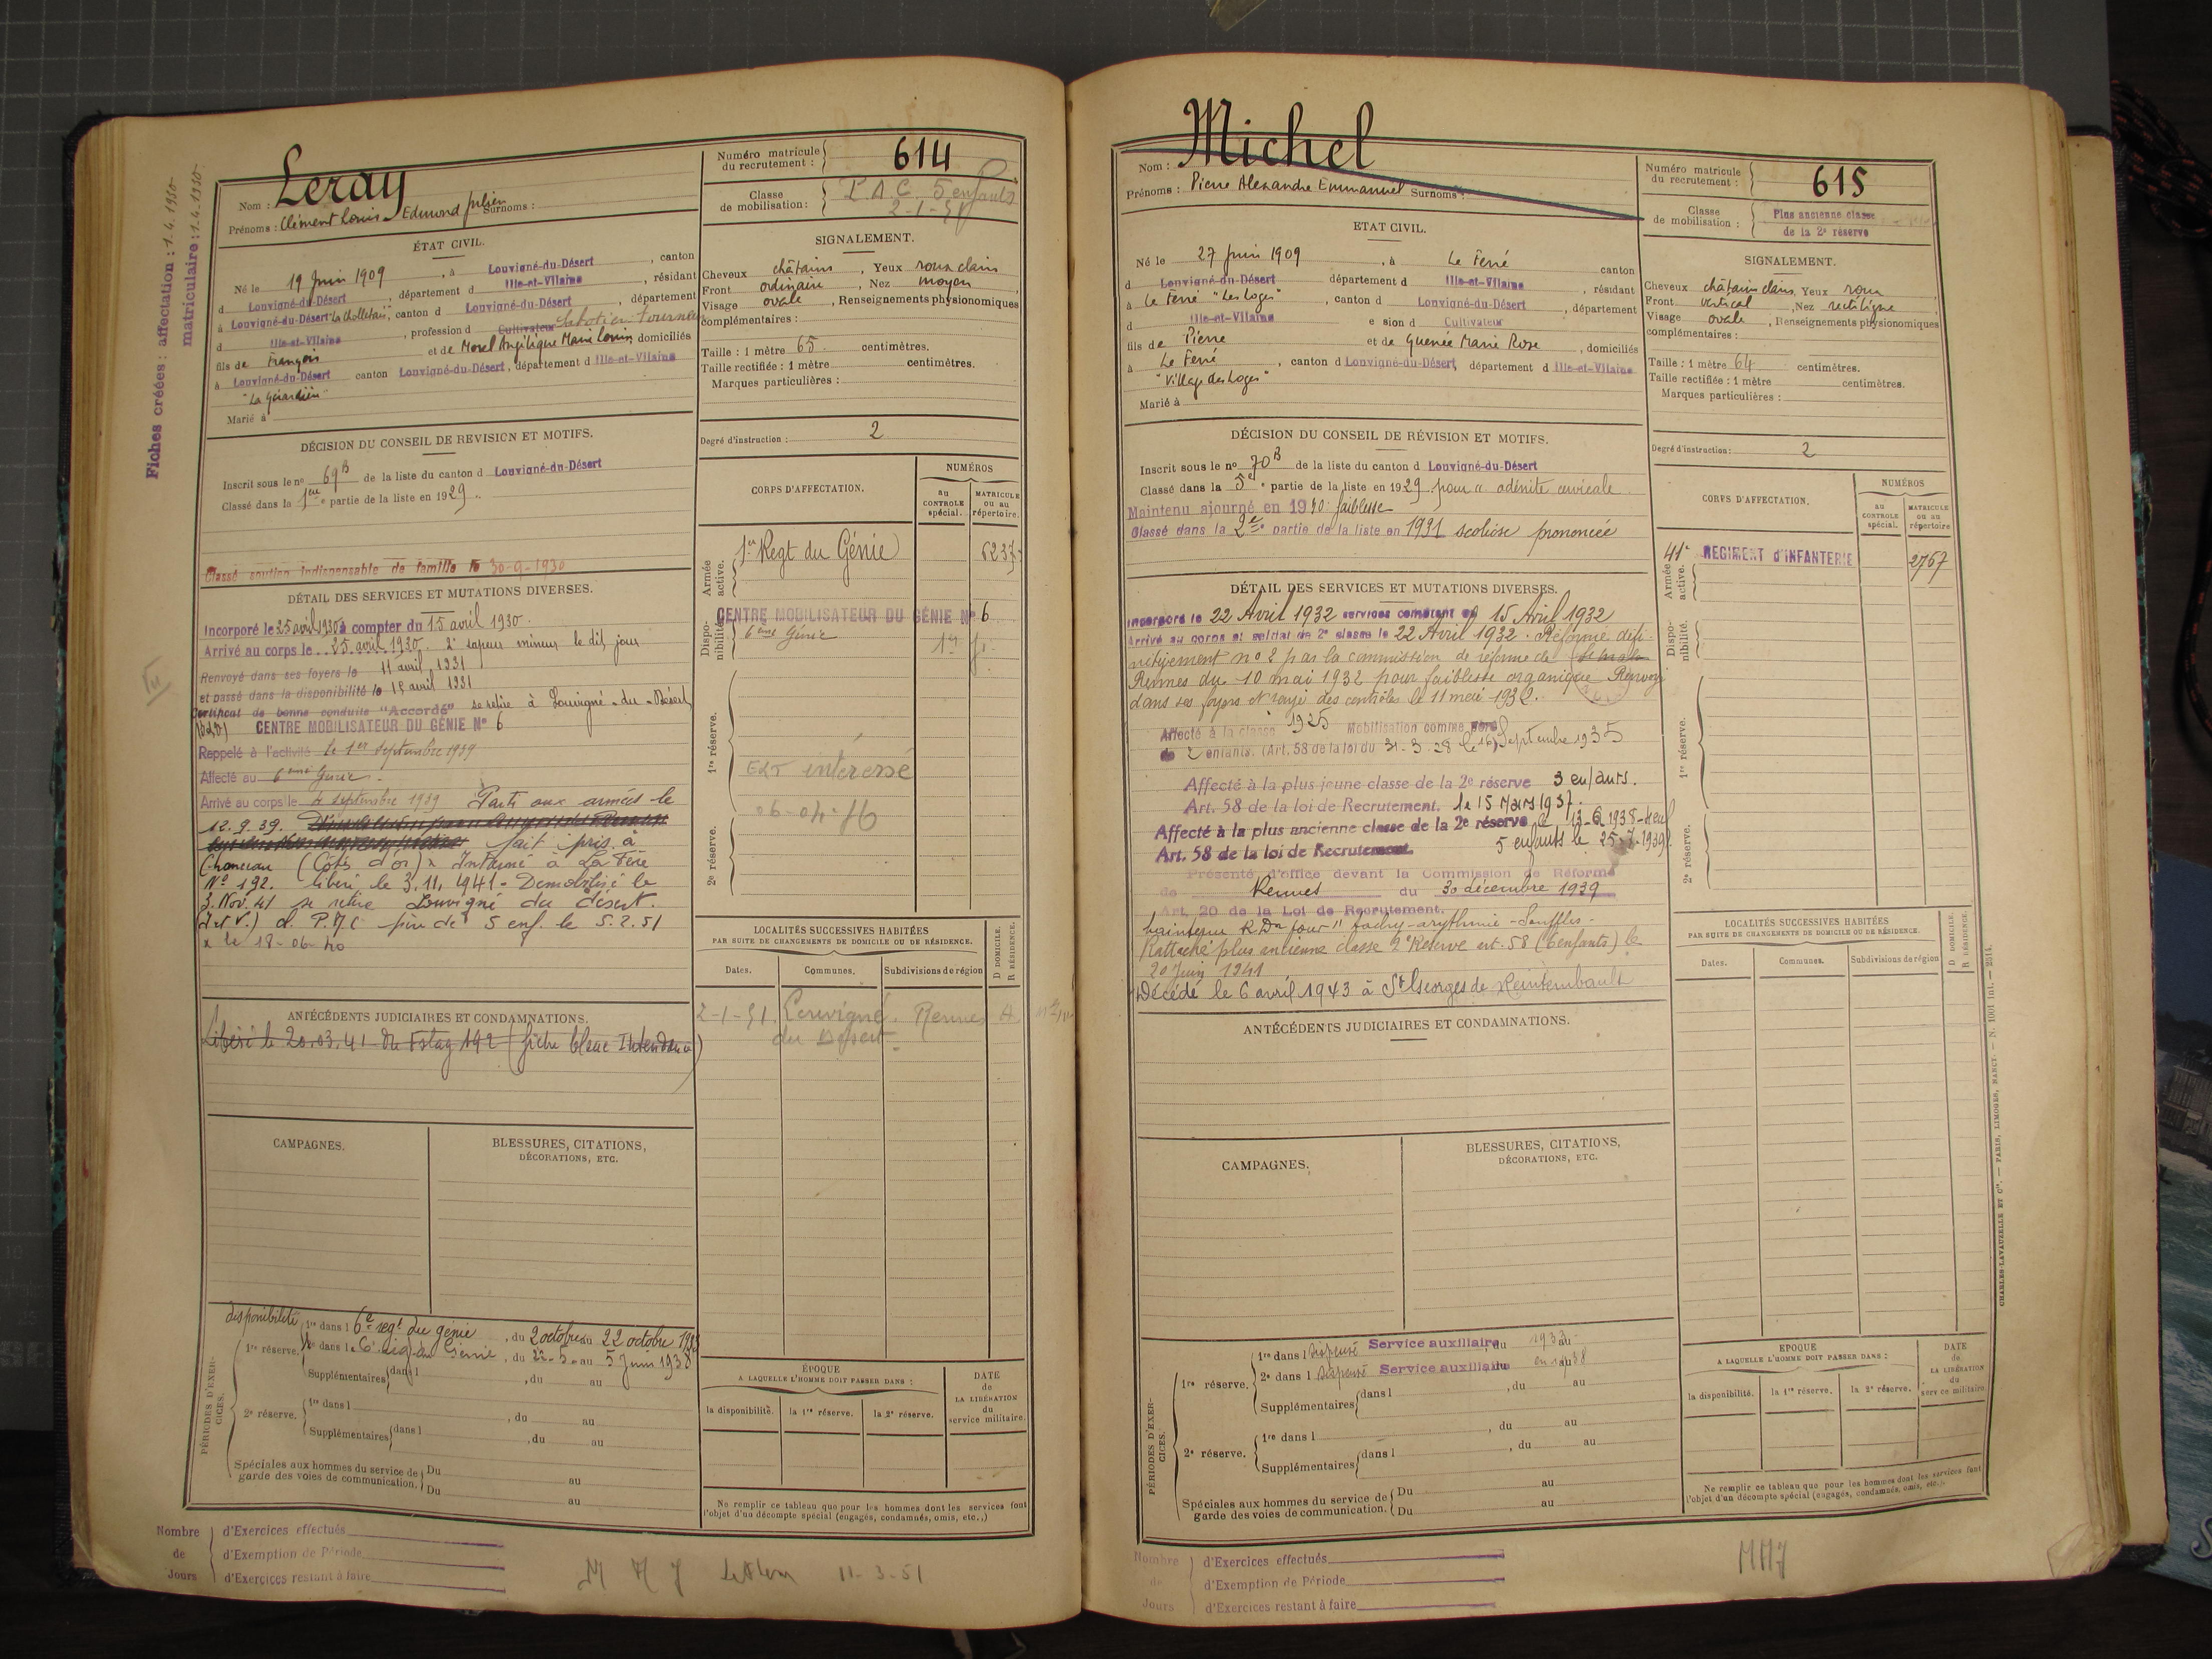 Fiches créées : affectation : 1.4.1930
matriculaire : 1.4.1930
Nom : Leray
Prénoms : Clément Louis Edmond Julien Surnoms :
Numéro matricule du recrutement : 614
Classe de mobilisation : P.A.C. 5 enfants
2-1-51
ÉTAT CIVIL.
Né le 19 Juin 1909, à Louvigné-du-Désert, canton
d Louvigné-du-Désert, département d Ille-et-Vilaine, résidant
à Louvigné-du-Désert, canton d Louvigné-du-Désert, département
d Ille-et-Vilaine, profession d Cultivateur
fils de François et de Morel Angélique Marie Louise, domiciliés
à Louvigné-du-Désert canton Louvigné-du-Désert, département d Ille-et-Vilaine
Marié à
SIGNALEMENT.
Cheveux châtains, Yeux roux clairs
Front ordinaire, Nez moyen
Visage ovale, Renseignements physionomiques
complémentaires :
Taille : 1 mètre 65 centimètres.
Taille rectifiée : 1 mètre centimètres.
Marques particulières :
Degré d'instruction : 2
DÉCISION DU CONSEIL DE REVISION ET MOTIFS.
Inscrit sous le nº 69 B de la liste du canton d Louvigné-du-Désert
Classé dans la 1ère partie de la liste en 1929.
Classé soutien indispensable de famille le 30-9-1930
DÉTAIL DES SERVICES ET MUTATIONS DIVERSES.
Incorporé le 25 avril 1930 à compter du 15 avril 1930.
Arrivé au corps le 25 avril 1930. 2e sapeur mineur le dit jour
Renvoyé dans ses foyers le 11 avril 1931
et passé dans la disponibilité le 15 avril 1931
Certificat de bonne conduite "Accordé" se retire à Louvigné-du-Désert
CENTRE MOBILISATEUR DU GÉNIE Nº 6
Rappelé à l'activité le 1er septembre 1939
Affecté au 6ème Génie.
Arrivé au corps le 4 septembre 1939 Parti aux armées le
12.9.39. fait pris à
(Côte d'or) x Interné à La Fère
Nº 192. libéré le 3.11.1941 - Démobilisé le
3. Nov. 41 se retire Louvigné du désert.
(I et V.) père de 5 enf. le 5.2.51
x le 18-06-40
CORPS D'AFFECTATION.
NUMÉROS
au CONTROLE spécial.
MATRICULE ou au répertoire.
Armée active.
1er Regt du Génie 6237
Disponibilité.
CENTRE MOBILISATEUR DU GÉNIE Nº 6
6ème Génie
1re réserve.
EST intéressé
06-04-76
2e réserve.
ANTÉCÉDENTS JUDICIAIRES ET CONDAMNATIONS.
Libéré le 20.03.41 du Fstag 192 (fiche blanc Intendance)
LOCALITÉS SUCCESSIVES HABITÉES
PAR SUITE DE CHANGEMENTS DE DOMICILE OU DE RÉSIDENCE.
Dates. Communes. Subdivisions de région D DOMICILE. R RÉSIDENCE.
2-1-51. Louvigné Rennes
du Désert
CAMPAGNES. BLESSURES, CITATIONS,
DÉCORATIONS, ETC.
PÉRIODES D'EXERCICES.
disponibilité 1re dans l 6e regt du génie, du 2 octobre au 22 octobre
1re réserve. dans l 6e Génie, du 22-5 au 5 Juin 1938
Supplémentaires dans l, du au
2e réserve. 1re dans l, du au
Supplémentaires dans l, du au
Spéciales aux hommes du service de Du au
garde des voies de communication. Du au
ÉPOQUE
A LAQUELLE L'HOMME DOIT PASSER DANS :
la disponibilité. la 1re réserve. la 2e réserve.
DATE de LA LIBÉRATION du service militaire.
Ne remplir ce tableau que pour les hommes dont les services font
l'objet d'un décompte spécial (engagés, condamnés, omis, etc.,)
Nombre de Jours
d'Exercices effectués
d'Exemption de Période
d'Exercices restant à faire
11-3-51
Nom : Michel
Prénoms : Pierre Alexandre Emmanuel Surnoms :
Numéro matricule du recrutement : 615
Classe de mobilisation : Plus ancienne classe
de la 2e réserve
ETAT CIVIL.
Né le 27 Juin 1909, à Le Ferré canton
d Louvigné-du-Désert département d Ille-et-Vilaine, résidant
à Le Ferré "Les Loges", canton d Louvigné-du-Désert, département
d Ille-et-Vilaine e sion d Cultivateur
fils de Pierre et de Guenée Marie Rose, domiciliés
à Le Ferré, canton d Louvigné-du-Désert, département d Ille-et-Vilaine
"Village des Loges"
Marié à
SIGNALEMENT.
Cheveux châtains clairs, Yeux roux
Front vertical, Nez rectiligne
Visage ovale, Renseignements physionomiques
complémentaires :
Taille : 1 mètre 64 centimètres.
Taille rectifiée : 1 mètre centimètres.
Marques particulières :
Degré d'instruction : 2
DÉCISION DU CONSEIL DE RÉVISION ET MOTIFS.
Inscrit sous le nº 70 B de la liste du canton d Louvigné-du-Désert
Classé dans la 5e partie de la liste en 1929 pour "adénite cervicale
Maintenu ajourné en 1930 faiblesse
Classé dans la 2e partie de la liste en 1931 scoliose prononcée
DÉTAIL DES SERVICES ET MUTATIONS DIVERSES.
Incorporé le 22 Avril 1932 services comptant du 15 Avril 1932
Arrivé au corps et soldat de 2e classe le 22 Avril 1932. Réformé défi-
nitivement nº 2 par la commission de réforme de
Rennes du 10 mai 1932 pour faiblesse organique Renvoyé
dans ses foyers et rayé des contrôles le 11 mai 1932.
Affecté à la classe 1925 Mobilisation comme père
de 2 enfants. (Art. 58 de la loi du 31-3-28 le 16 Septembre 1935
Affecté à la plus jeune classe de la 2e réserve 3 enfants.
Art. 58 de la loi de Recrutement. le 15 Mars 1937.
Affecté à la plus ancienne classe de la 2e réserve le 13-6-1938-4 enf
Art. 58 de la loi de Recrutement. 5 enfants le 25-7-1939
Présenté d'office devant la Commission de Réforme
de Rennes du 30 décembre 1939
Art. 20 de la Loi de Recrutement.
Maintenu R.D. pour "tachy-arythmie-Souffles-
Rattaché plus ancienne classe 2e Réserve art. 58 (6 enfants) le
20 Juin 1941
Décédé le 6 avril 1943 à St Georges de Reintembault
CORPS D'AFFECTATION.
NUMÉROS
au CONTROLE spécial.
MATRICULE ou au répertoire
Armée active.
41e REGIMENT d'INFANTERIE 2767
Disponibilité.
1re réserve.
2e réserve.
ANTÉCÉDENTS JUDICIAIRES ET CONDAMNATIONS.
LOCALITÉS SUCCESSIVES HABITÉES
PAR SUITE DE CHANGEMENTS DE DOMICILE OU DE RÉSIDENCE.
Dates. Communes. Subdivisions de région D DOMICILE. R RÉSIDENCE.
CAMPAGNES. BLESSURES, CITATIONS,
DÉCORATIONS, ETC.
PÉRIODES D'EXERCICES.
1re réserve. 1re dans l dispensé Service auxiliaire, du 1933 au
2e dans l dispensé Service auxiliaire en 1938
Supplémentaires dans l, du au
2e réserve. 1re dans l, du au
Supplémentaires dans l, du au
Spéciales aux hommes du service de Du au
garde des voies de communication. Du au
EPOQUE
A LAQUELLE L'HOMME DOIT PASSER DANS :
la disponibilité. la 1re réserve. la 2e réserve.
DATE de LA LIBÉRATION du service militaire.
Ne remplir ce tableau que pour les hommes dont les services font
l'objet d'un décompte spécial (engagés, condamnés, omis, etc.)
CHARLES-LAVAUZELLE ET Cie. — PARIS, LIMOGES, NANCY. — N. 1001 Int. — 2514.
Nombre de Jours
d'Exercices effectués
d'Exemption de Période
d'Exercices restant à faire